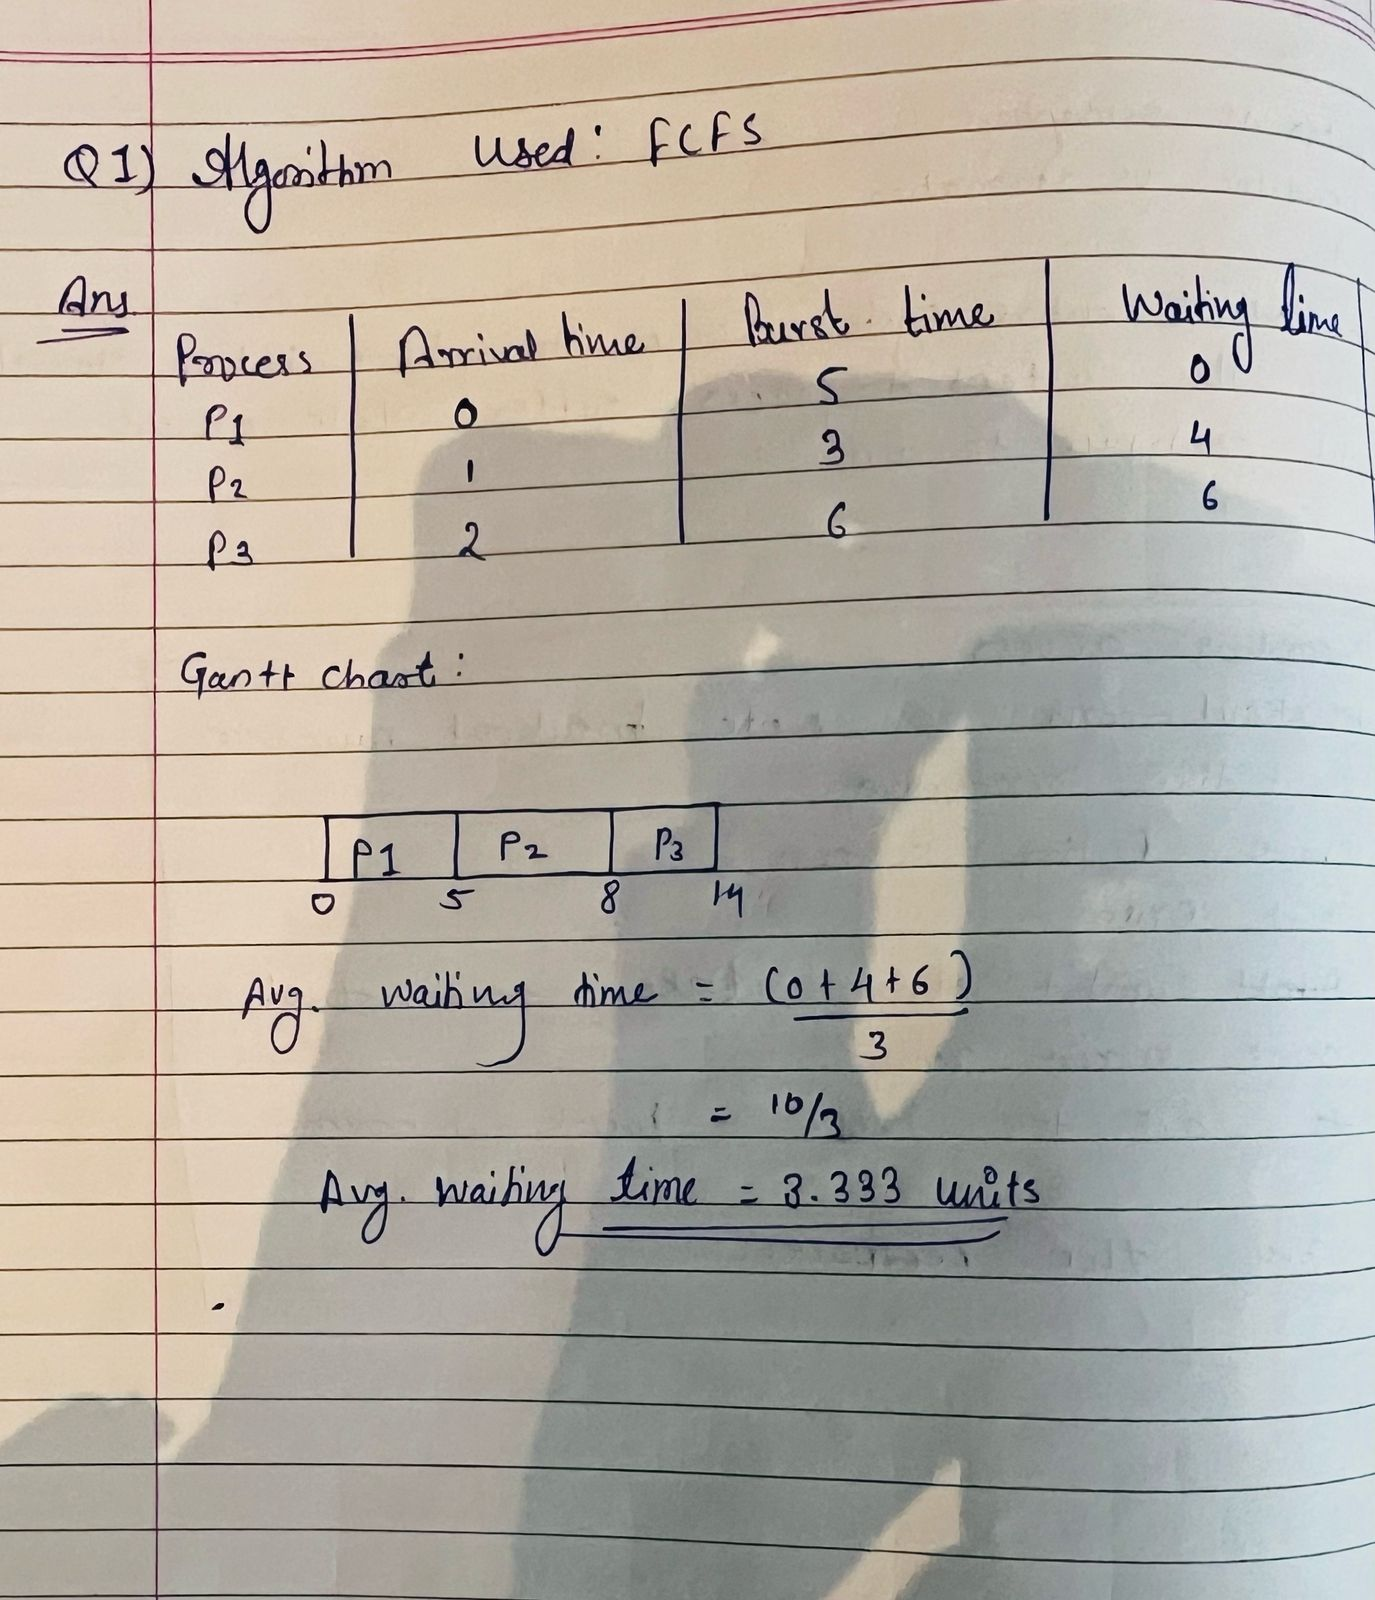 Q1) Algorithm Used: FCFS
Ans
Process Arrival time Burst time Waiting time
P1 0 5 0
P2 1 3 4
P3 2 6 6
Gantt chart:
P1 P2 P3
0 5 8 14
Avg. waiting time = (0+4+6)
3
= 10/3
Avg. waiting time = 3.333 units